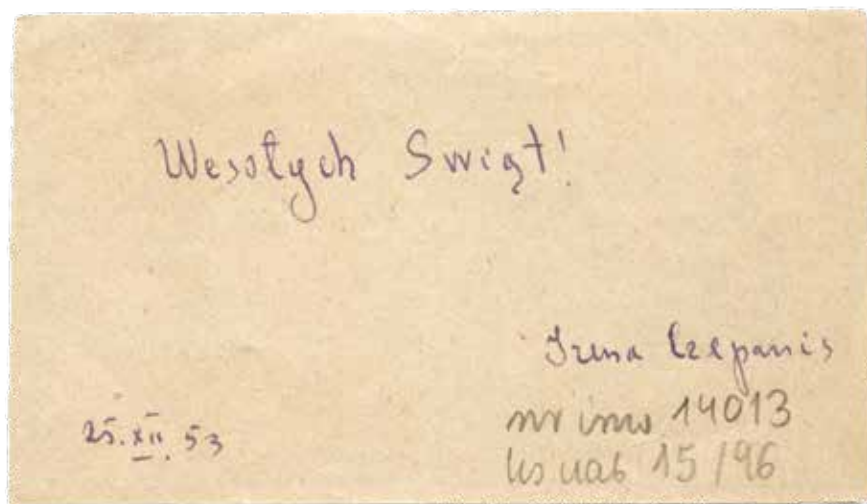 Wesołych Swiąt!
Irena Czepanis
25.XII.53
nr inw 14013
ks nab 15/96